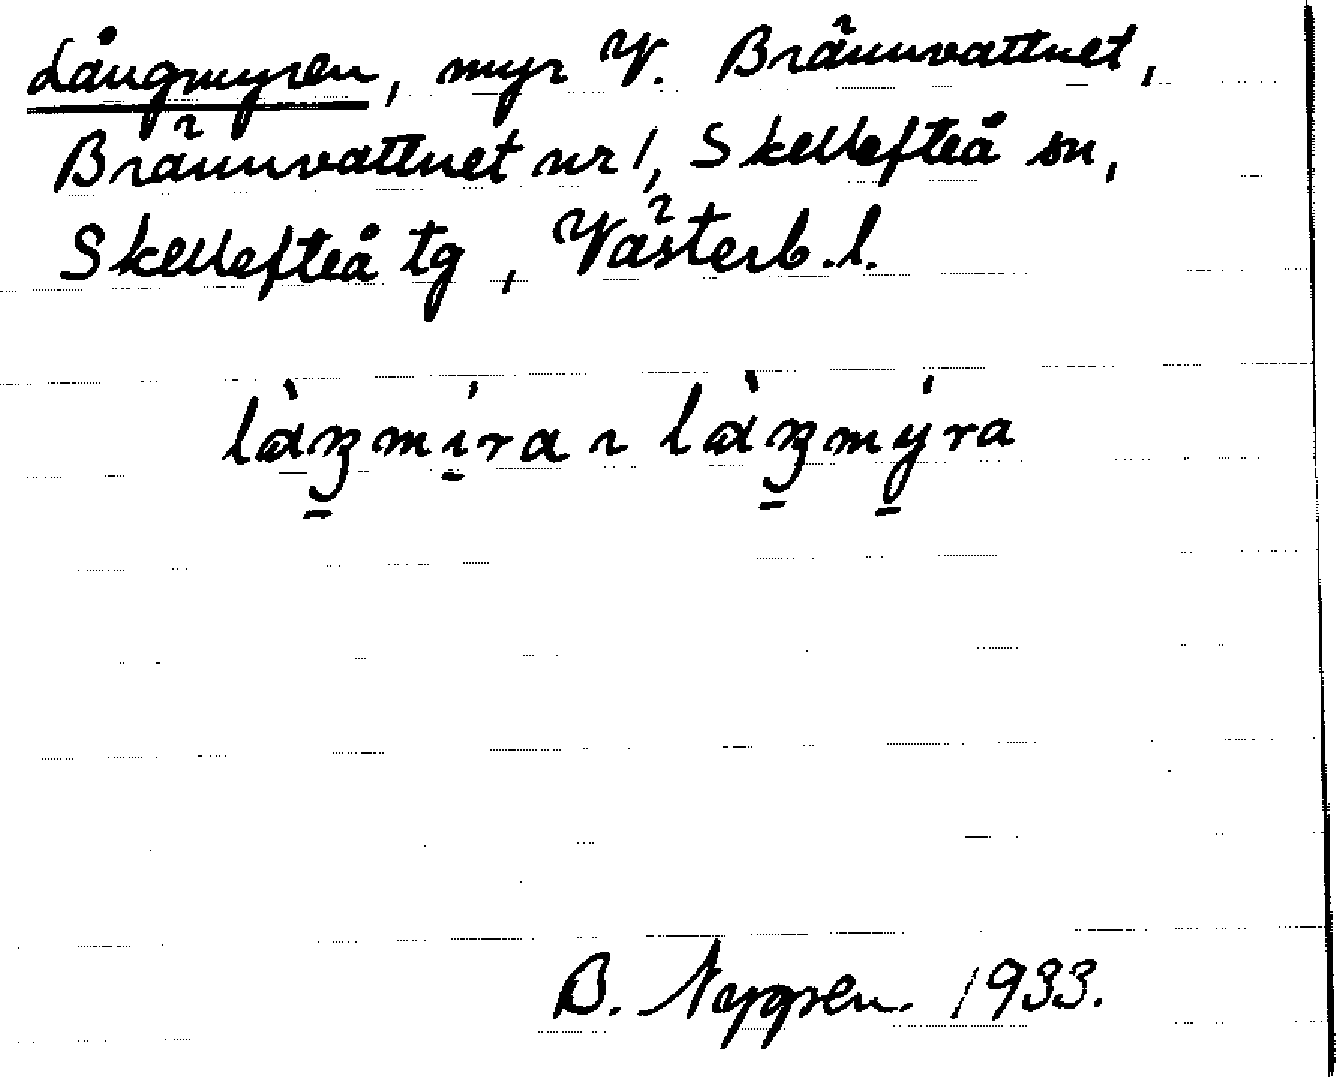 Långmyren, myr V. Brännvattnet,
Brännvattnet nr 1, Skellefteå sn,
Skellefteå tg, Västerb.l.
B. Nygren. 1933.